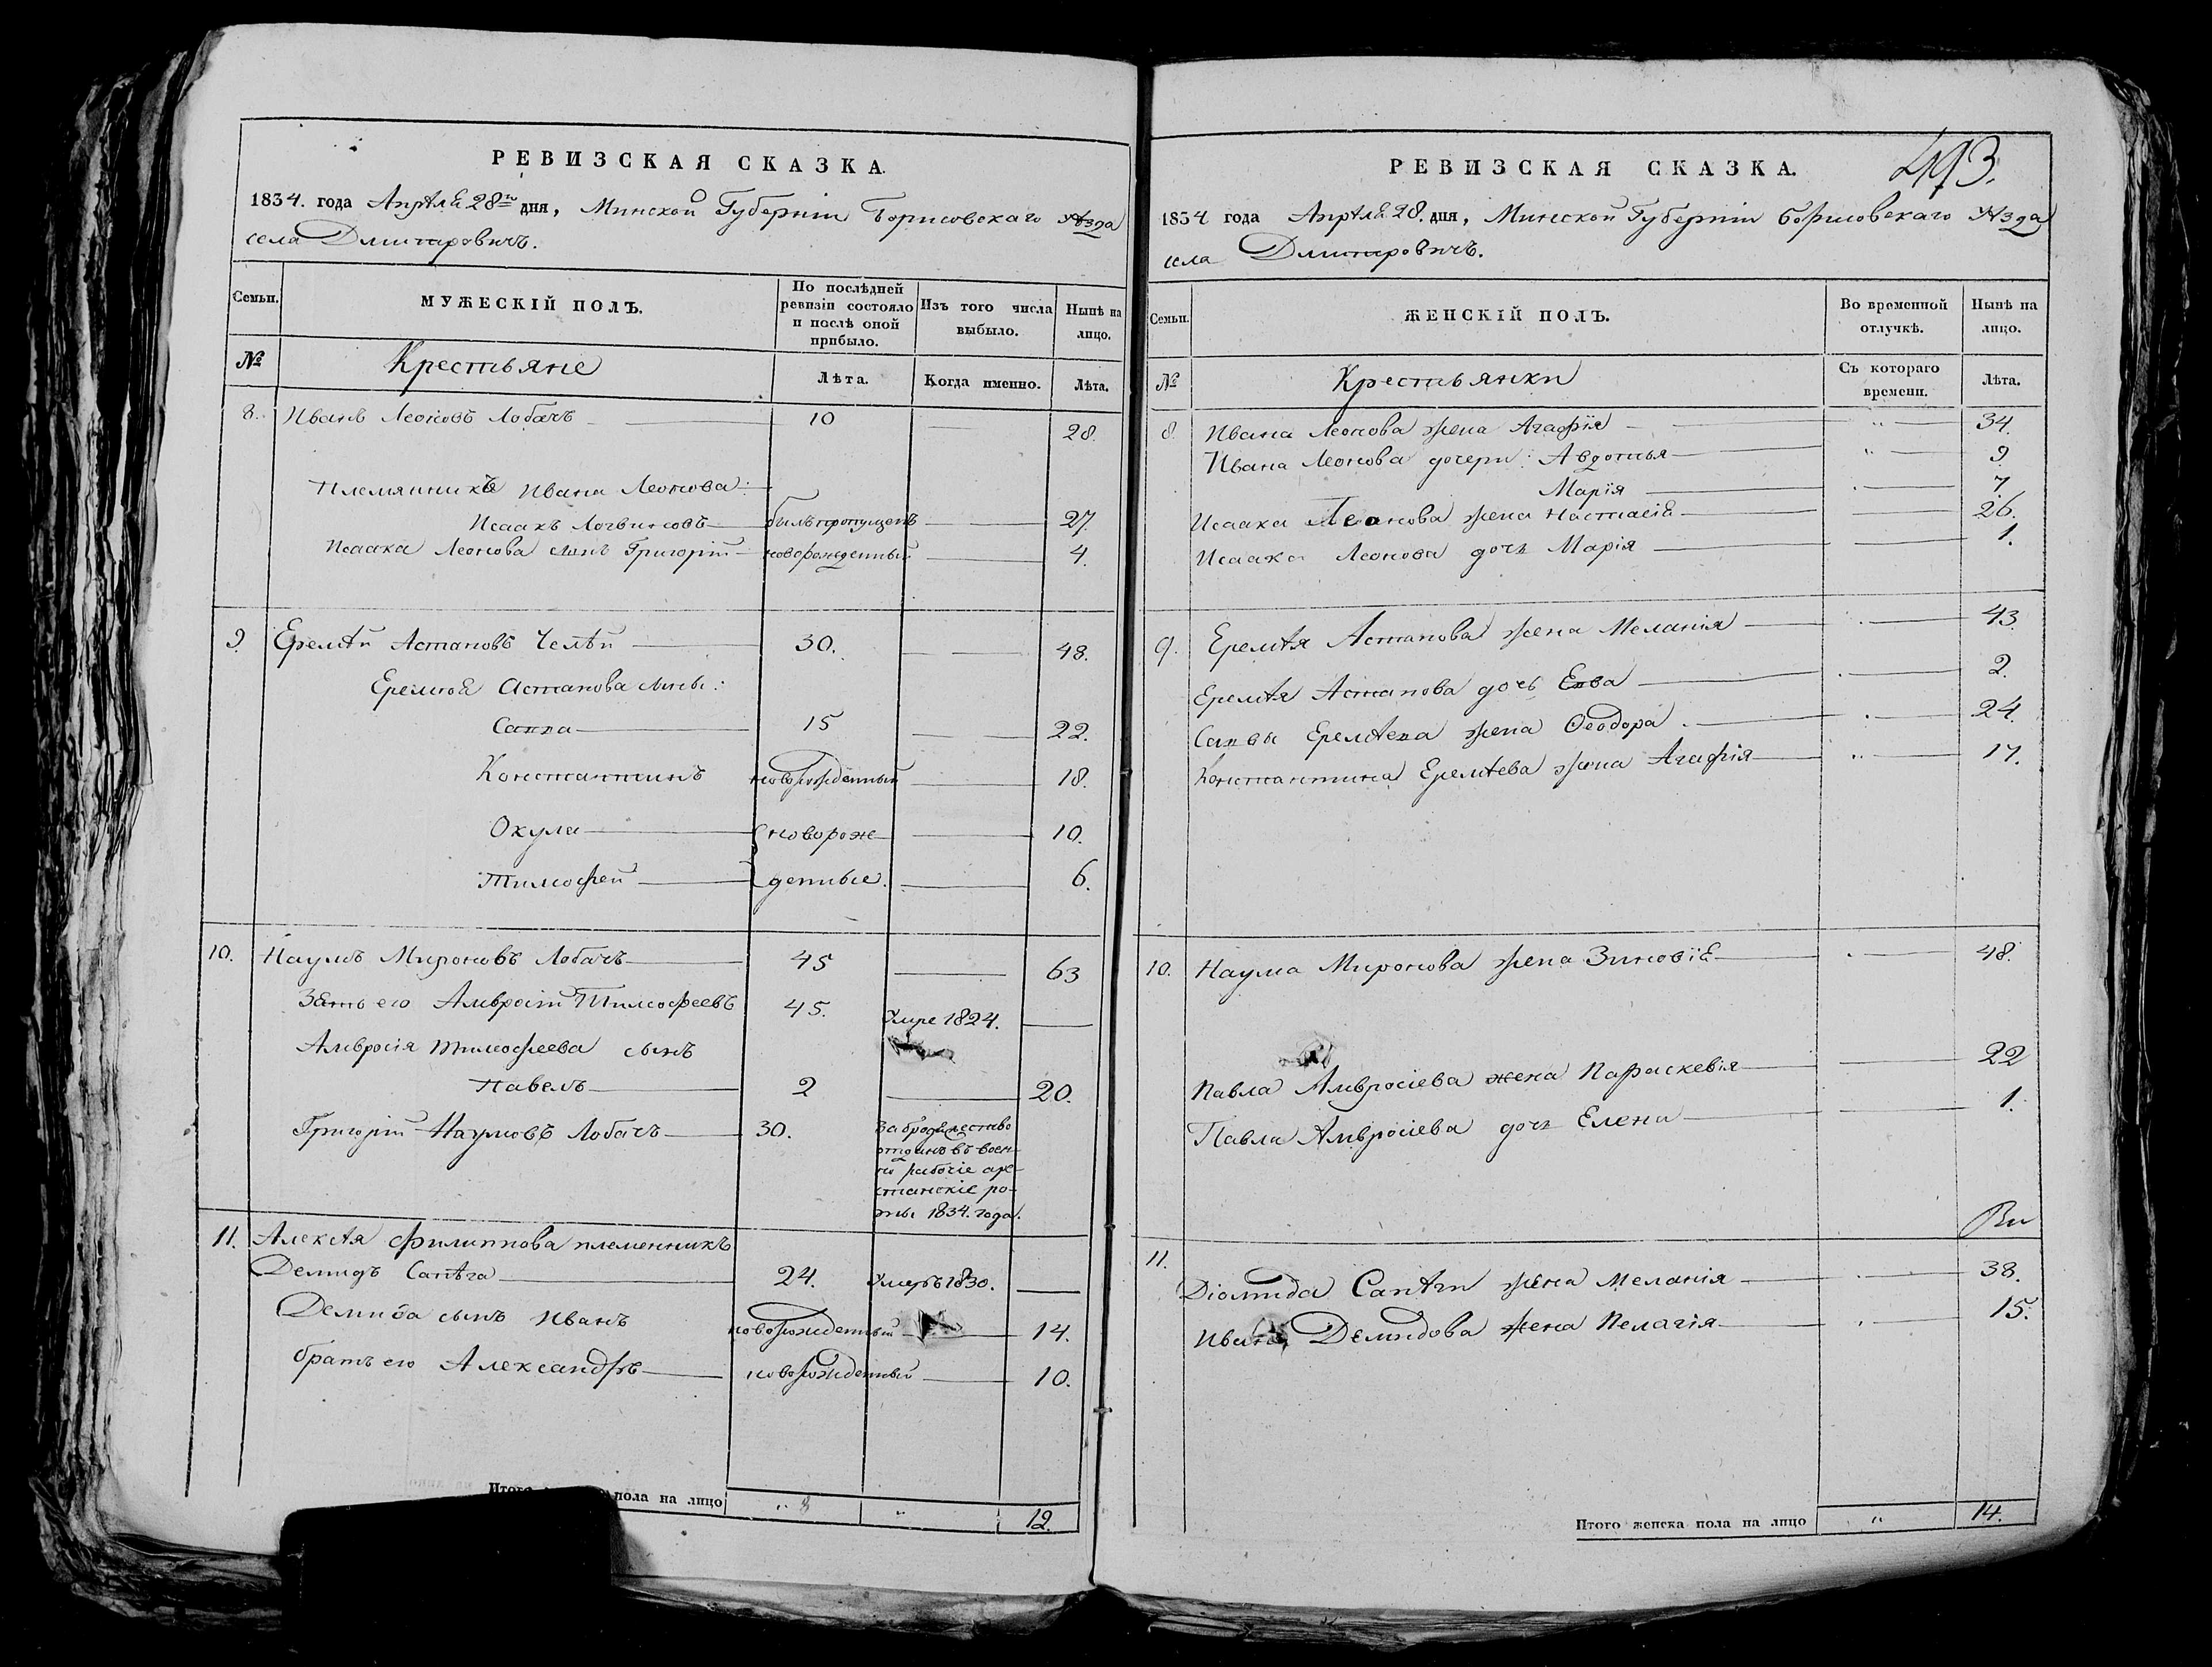 РЕВИЗСКАЯ СКАЗКА.
1834. года Апрѣля 28го дня, Минской Губерніи Борисовскаго уѣзда
села Дмитровичъ.
Семьи. МУЖЕСКІЙ ПОЛЪ. По послѣдней ревизіи состояло и послѣ оной прибыло. Изъ того числа выбыло. Нынѣ на лицо.
№ Крестьяне Лѣта. Когда именно. Лѣта.
8. Иванъ Леоновъ Лобачъ 10 28.
Племянникъ Ивана Леонова:
Исаакъ Логвиновъ былъ пропущенъ 27.
Исаака Леонова сынъ Григорій новорожденный 4.
9. Еремѣй Астаповъ Челѣй 30. 48.
Еремѣя Астапова сыны:
Савва 15 22.
Константинъ новорожденный 18.
Окула новорож- 10.
Тимофей денные. 6.
10. Наумъ Мироновъ Лобачъ 45 63
Зять его Амвросій Тимофеевъ 45. Умре 1824.
Амвросія Тимофеева сынъ
Павелъ 2 20.
Григорій Наумовъ Лобачъ 30. За бродяжество
отданъ въ воен-
но рабочіе аре-
станскіе ро-
ты 1834. года.
11. Алексѣя Филиппова племенникъ
Демидъ Сапѣга 24. Умеръ 1830.
Демида сынъ Иванъ новорожденный 14.
братъ его Александръ новорожденный 10.
Итого пола на лицо " 8 " 12.
РЕВИЗСКАЯ СКАЗКА. 493.
1834 года Апрѣля 28. дня, Минской Губерніи Борисовскаго уѣзда
села Дмитровичъ.
Семьи. ЖЕНСКІЙ ПОЛЪ. Во временной отлучкѣ. Нынѣ на лицо.
№ Крестьянки Съ котораго времени. Лѣта.
8. Ивана Леонова жена Агафія " 34.
Ивана Леонова дочери: Авдотья " 9
Марія 7.
Исаака Леонова жена Настасія 26.
Исаака Леонова дочь Марія 1.
9. Еремѣя Астапова жена Меланія 43.
Еремѣя Астапова дочь Ева 2.
Саввы Еремѣева жена Ѳеодора 24.
Константина Еремѣева жена Агафія " 17.
10. Наума Миронова жена Зиновія 48.
Павла Амвросіева жена Параскевія 22
Павла Амвросіева дочь Елена 1.
11. Діомида Сапѣги жена Меланія 38.
Ивана Демидова жена Пелагія 15.
Итого женска пола на лицо " 14.